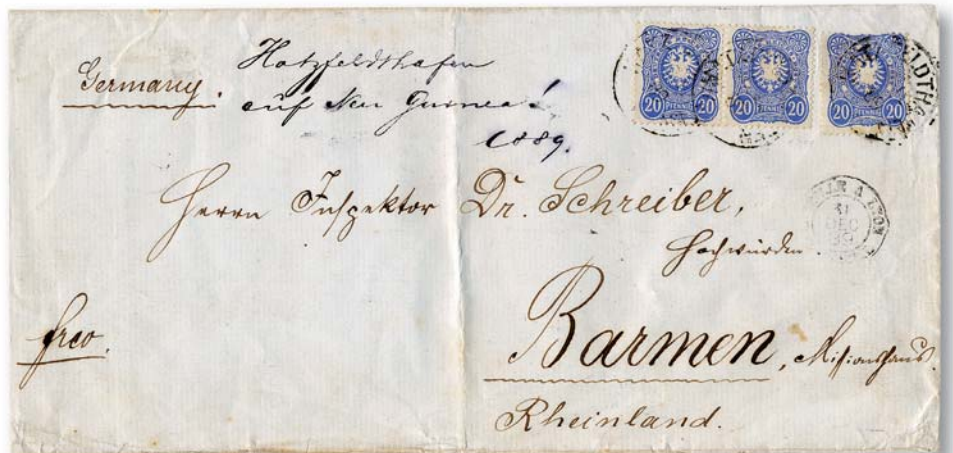 Germany.
Hatzfeldthafen
auf Neu Guinea!
1889.
20 PFENNIG 20
20 PFENNIG 20
20 PFENNIG 20
Herrn Inspektor Dr. Schreiber,
Hochwürden.
31
DEC
89
frco.
Barmen, Missionshaus.
Rheinland.